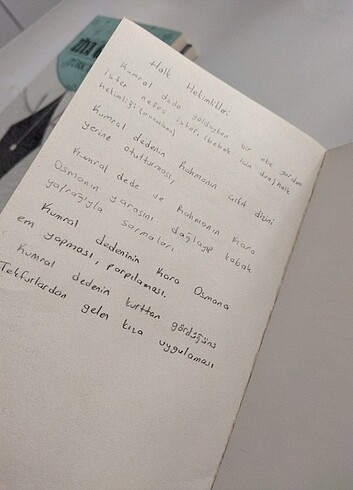 ZİYA G
TÜRK
Halk Hekimlikleri
Kumral dede yoldayken bir ebe yardım
ister nefes ister. (bebek için dua) halk
hekimliği
Kumral dedenin Rahmanın çıkık dizini
yerine oturtması,
Kumral dede ve Rahmanın Kara
Osmanın yarasını dağlayıp kabak
yaprağıyla sarmaları
Kumral dedeninin Kara Osmana
em yapması, parpılaması.
Kumral dedenin kurttan gördüğünü
Tekfurlardan gelen kıza uygulaması